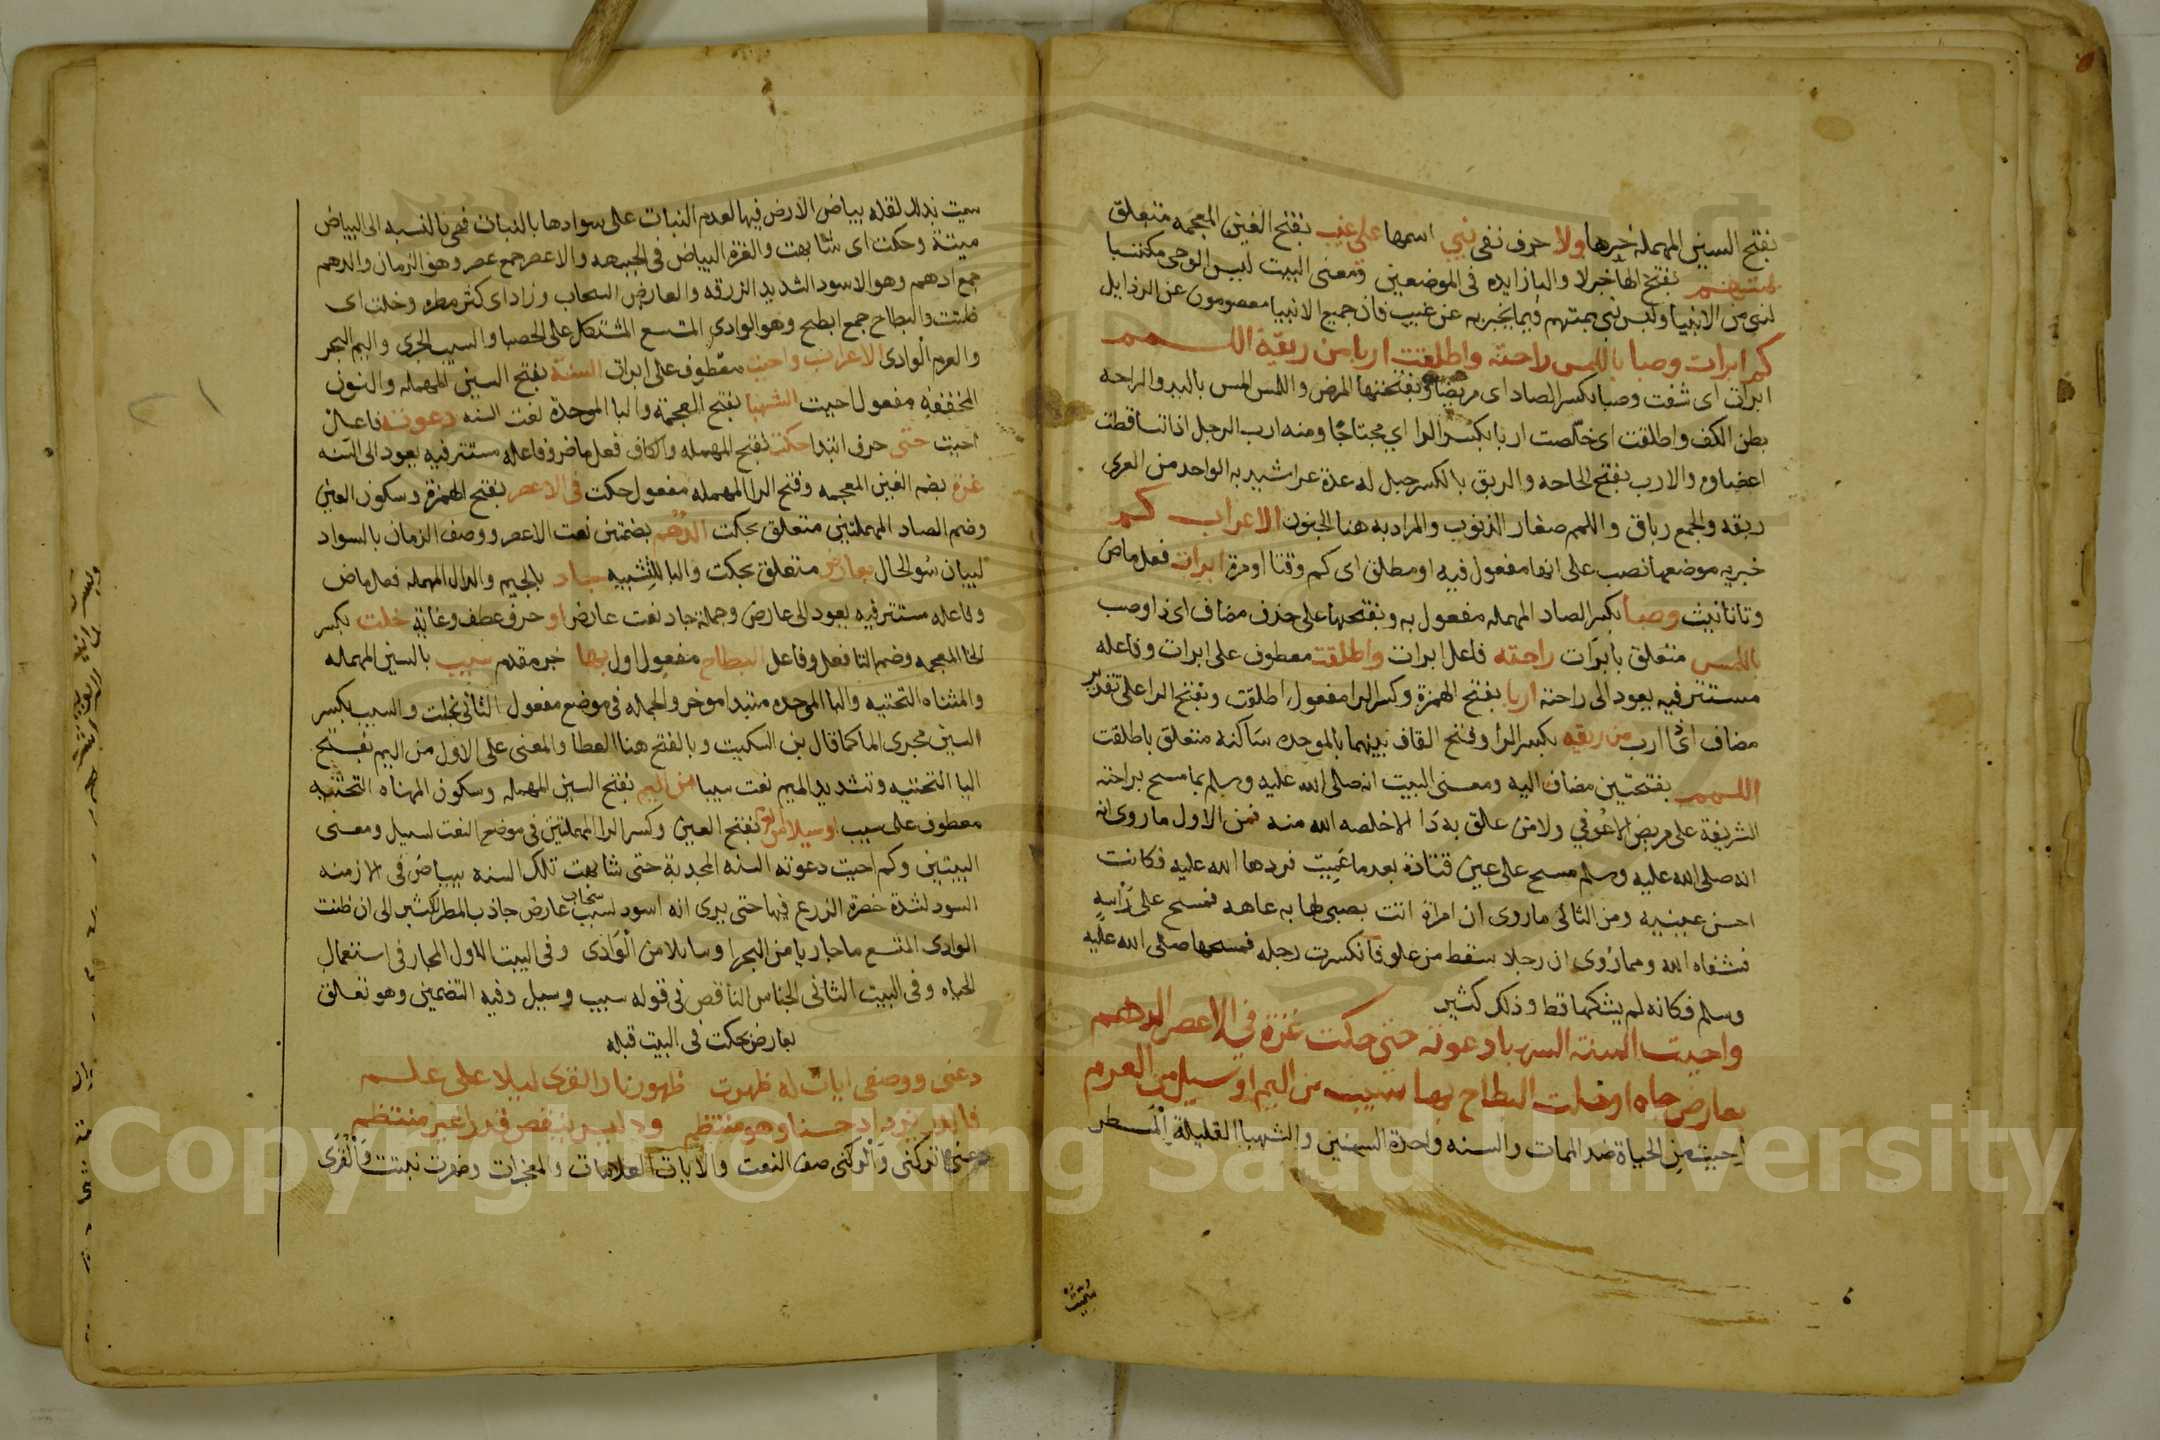 بفتح السين المهملة خبرها ولا حرف نفي نبي اسمها على غيب بفتح الغين المعجمه متعلق
بمتهم بفتح الها خبر لا والبا زايده في الموضعين ومعنى البيت ليس الوحي مكتسبا
لنبي من الانبيا وليس نبي بمتهم فيما يخبر به عن غيب فان جميع الانبيا معصومون عن الرذايل
كم ابرات وصبا باللمس راحته واطلقت اربا من ربقة اللمم
ابرات اى شفت وصبا بكسر الصاد اى مريضا وبفتحتها المرض واللمس المس باليد والراحه
بطن الكف واطلقت اى خلّصت اربا بكسر الرا اي محتاجا ومنه ارب الرجل اذا تساقطت
اعضاوه والارب بفتح الحاجه والربق بالكسر حبل له عدة عرا شيد به الواحد من العرى
ربقه والجمع رباق واللمم صغار الذنوب والمراد به هنا الجنون الاعراب كم
خبريه موضعها نصب على انها مفعول فيه او مطلق اى كم وقتا او مرة ابرات فعل ماض
وتا تانيث وصبا بكسر الصاد المهمله مفعول به وبفتحها على حذف مضاف اى ذا وصب
باللمس متعلق بابرات راحته فاعل ابرات واطلقت معطوف على ابرات وفاعله
مستتر فيه يعود الى راحته اربا بفتح الهمزة وكسر الرا مفعول اطلقت وبفتح الرا على تقدير
مضاف اى ذا ارب من ربقه بكسر الرا وفتح القاف بينهما بالموحده ساكنه متعلق باطلقت
اللمم بفتحتين مضاف اليه ومعنى البيت انه صلى الله عليه وسلم بما مسح براحته
الشريفة على مريض الا عُوفي ولا من علق به ذا الا خلصه الله منه فمن الاول ما روى انه
انه صلى الله عليه وسلم مسح على عين قتادة بعد ما عميت فردها الله عليه فكانت
احسن عينيه ومن الثاني ما روى ان امراة اتت بصبي لها به عاهه فمسح على رأسه
فشفاه الله ومما رُوى ان رجلا سقط من علو فانكسرت رجله فمسحها صلى الله عليه
وسلم فكانه لم يشكها قط وذلك كثير
واحيت السنة الشهبا دعوته حتى حكت غرة في الاعصر الدهم
بعارض جاد او خلت البطاح بها سيب من اليم او سيل من العرم
احيت من الحياة ضد الممات والسنه واحدة السنين والشهبا القليلة المطر
سميت بذلك لقله بياض الارض فيها لعدم النبات على سوادها بالنبات فهي بالنسبه الى البياض
ميتة وحكت اى شابهت والغرة البياض في الجبهه والاعصر جمع عصر وهو الزمان والدهم
جمع ادهم وهو الاسود الشديد الزرقه والعارض السحاب وزاد اى كثر مطره وخلت اى
ظننت والبطاح جمع ابطح وهو الوادي المتسع المشتكل على الحصبا والسيب الجرى واليم البحر
والعرم الوادى الاعراب واحيت معطوف على ابرات السنة بفتح السين المهمله والنون
المخففه مفعول احيت الشهبا بفتح المعجمة والبا الموحدة نعت السنه دعوته فاعل
احيت حتى حرف ابتدا حكت بفتح المهمله والكاف فعل ماض وفاعله مستتر فيه يعود الى السنه
غرة بضم الغين المعجمه وفتح الرا المهمله مفعول حكت في الاعصر بفتح الهمزة وسكون العين
وضم الصاد المهملتين متعلق بحكت الدُهُم بضمتين نعت الاعصر ووصف الزمان بالسواد
لبيان سُو الحال بعارض متعلق بحكت والبا للتشبيه جاد بالجيم والدال المهمله فعل ماض
وفاعله مستتر فيه يعود الى عارض وجملة جاد نعت عارض او حرف عطف وغاية خلت بكسر
الخا المعجمه وضم التا فعل وفاعل البطاح مفعول اول بها خبر مقدم سيب بالسين المهمله
والمثناه التحتيه والبا الموحده مبتدا موخر والجمله في موضع مفعول الثاني لخلت والسيب بكسر
السين مجرى الما كما قال بن السكيت وبالفتح هنا العطا والمعنى على الاول من اليم بفتح
اليا التحتيه وتشديد الميم نعت سيبا من اليم بفتح السين المهمله وسكون المهناه التحتيه
معطوف على سيب او سيلا من العرم بفتح العين وكسر الرا المهملتين في موضع النعت لسيل ومعنى
البيتين وكم احيت دعوته السنه المجدبة حتى شابهت تلك السنه ببياض في الازمنه
السود لشدة خضرة الزرع فيها حتى يرى انه اسود لسبب سحاب عارض جاذ بالمطر الكثير الى ان ظنت
الوادى المتسع ما جاريا من البحر او سايلا من الوادى وفي البيت الاول المجاز في استعمال
الحياه وفي البيت الثاني الجناس الناقص في قوله سيب وسيل وفيه التضمين وهو تعلق
بعارض بحكت في البيت قبله
دعني ووصفي ايات له ظهرت ظهور نار القرى ليلا على علم
فالدر يزداد حسنا وهو منتظم وليس ينقص قدرا غير منتظم
دعني اتركني وَاتركني صف النعت والايات العلامات والمعجزات وظهرت نبتت وَالْقُرَى